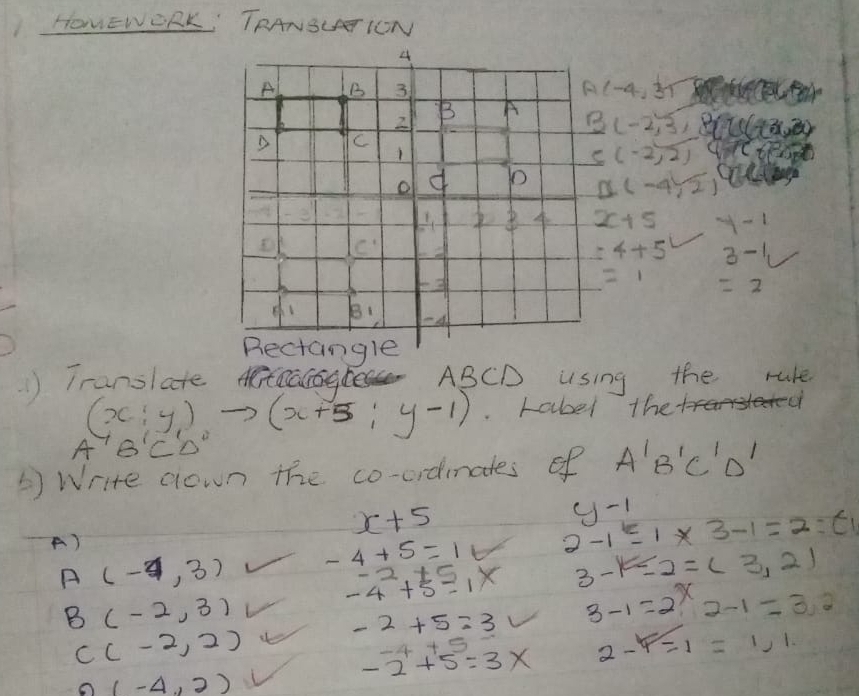 HOMEWORK: TRANSLATION
4
A B 3 B A
2
D C 1
0 C D
A(-4,3)
B(-2,3)
C(-2,2)
D(-4,2)
-1 2 3 4
x+5 y-1
-4+5 ✓ 3-1 ✓
= 1 = 2
D' C' -2
-3
A' B' -4
Rectangle
a) Translate ABCD using the rule
(x;y) → (x+5; y-1). Label the translated
A'B'C'D'
b) Write down the co-ordinates of A'B'C'D'
x+5 y-1
A)
A (-4,3) ✓ -4+5=1 ✓ 2-1=1 × 3-1=2
-2+5
B (-2,3) ✓ -4+5=1 × 3-1=2=(3,2)
C (-2,2) ✓ -2+5=3 ✓ 3-1=2 × 2-1=3,2
-4+5
D (-4,2) ✓ -2+5=3 × 2-1=1=1,1